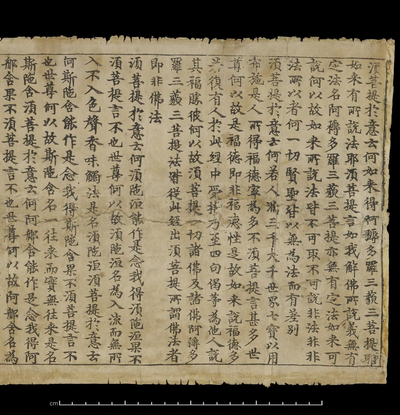 湏菩提於意云何如来得阿耨多羅三藐三菩提耶
如来有所說法耶湏菩提言如我解佛所說義無有
定法名阿耨多羅三藐三菩提亦無有定法如来可
說何以故如来所說法皆不可取不可說非法非非
法所以者何一切賢聖皆以無為法而有差別
湏菩提於意云何若人滿三千大千世界七寶以用
布施是人所得福德寧為多不湏菩提言甚多世
尊何以故是福德即非福德性是故如来說福德多
若復有人於此經中受持乃至四句偈等為他人說
其福勝彼何以故湏菩提一切諸佛及諸佛阿耨多
羅三藐三菩提法皆從此經出湏菩提所謂佛法者
即非佛法
湏菩提於意云何湏陁洹能作是念我得湏陁洹果不
湏菩提言不也世尊何以故湏陁洹名為入流而無所
入不入色聲香味觸法是名湏陁洹湏菩提於意云
何斯陁含能作是念我得斯陁含果不湏菩提言不
也世尊何以故斯陁含名一往来而實無往来是名
斯陁含湏菩提於意云何阿那含能作是念我得阿
那含果不湏菩提言不也世尊何以故阿那含名為
cm